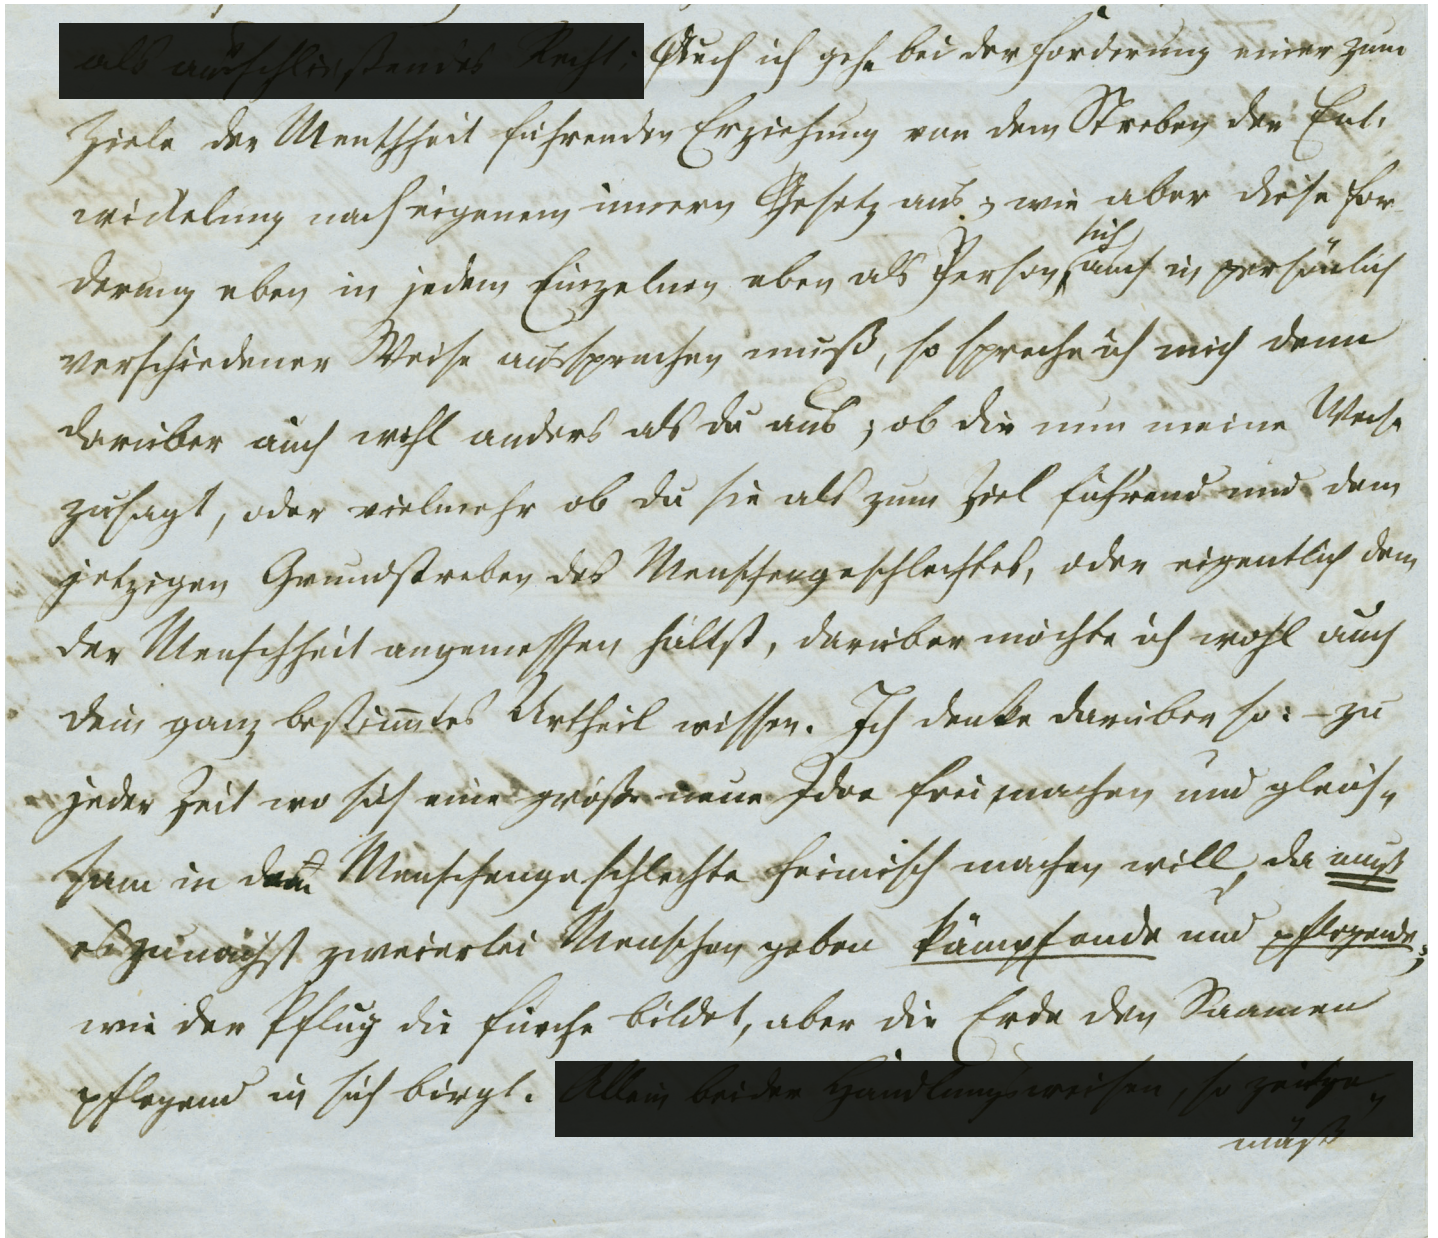 Auch ich gehe bei der Forderung einer zum
Ziele der Menschheit führenden Erziehung von dem Streben der Ent-
wickelung nach eigenem innern Gesetz aus; wie aber diese For-
derung eben in jedem Einzelnen eben als Person sich auch in persönlich
verschiedener Weise aussprechen muß, so spreche ich mich denn
darüber auch wohl anders als du aus; ob dir nun meine Weise
zusagt, oder vielmehr ob du sie als zum Ziel führend und dem
jetzigen Grundstreben des Menschengeschlechtes, oder eigentlich dem
der Menschheit angemessen hältst, darüber möchte ich wohl auch
dein ganz bestimmtes Urtheil wissen. Ich denke darüber so: – zu
jeder Zeit wo sich eine große neue Idee frei machen und gleich-
sam in dem Menschengeschlechte heimisch machen will, da muß
es zunächst zweierlei Menschen geben kämpfende und pflegende;
wie der Pflug die Furche bildet, aber die Erde den Saamen
pflegend in sich birgt.
mäß